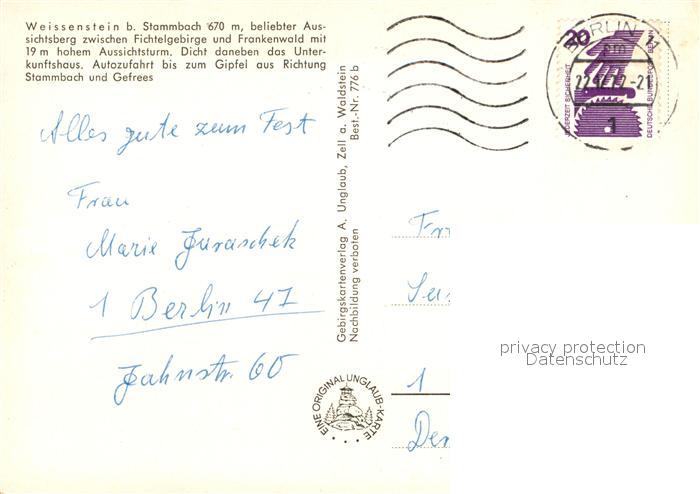 Weissenstein b. Stammbach 670 m, beliebter Aus-
sichtsberg zwischen Fichtelgebirge und Frankenwald mit
19 m hohem Aussichtsturm. Dicht daneben das Unter-
kunftshaus. Autozufahrt bis zum Gipfel aus Richtung
Stammbach und Gefrees
Alles gute zum Fest
Frau
Marie Juraschek
1 Berlin 47
Jahnstr. 60
Gebirgskartenverlag A. Unglaub, Zell a. Waldstein
Best.-Nr. 776 b
Nachbildung verboten
EINE ORIGINAL UNGLAUB-KARTE
BERLIN 11
20
JEDERZEIT SICHERHEIT
DEUTSCHE BUNDESPOST BERLIN
-21
1
Fr
1
privacy protection
Datenschutz